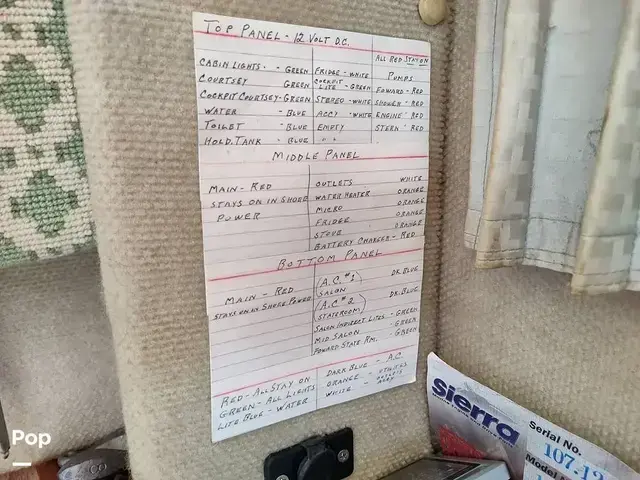 TOP PANEL - 12 VOLT D.C.
CABIN LIGHTS - GREEN
COURTSEY GREEN
COCKPIT COURTSEY - GREEN
WATER - BLUE
TOILET - BLUE
HOLD. TANK - BLUE
FRIDGE - WHITE
COCKPIT LITE - GREEN
STEREO - WHITE
ACCY - WHITE
EMPTY
" "
ALL RED STAY ON
PUMPS
FOWARD - RED
SHOWER - RED
ENGINE - RED
STERN - RED
MIDDLE PANEL
MAIN - RED
STAYS ON IN SHORE
POWER
OUTLETS WHITE
WATER HEATER ORANGE
MICRO ORANGE
FRIDGE ORANGE
STOVE ORANGE
BATTERY CHARGER - RED
BOTTOM PANEL
MAIN - RED
STAYS ON AS SHORE POWER
(A.C. #1) DK. BLUE
SALON
(A.C. #2) DK. BLUE
STATEROOM
SALON INDIRECT LITES - GREEN
MID SALON - GREEN
FOWARD STATE RM. - GREEN
RED - ALL STAY ON
GREEN - ALL LIGHTS
LITE BLUE - WATER
DARK BLUE - A.C
ORANGE - UTILITIES
WHITE - OUTLETS
Sierra
Serial No.
107-12
Model
Pop